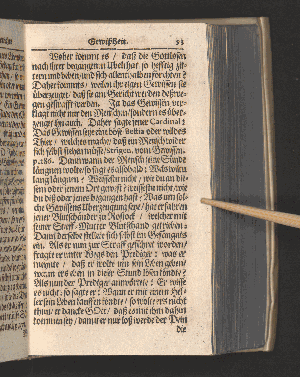 Gewißheit. 53
Woher kommt es / daß die Gottlosen
nach ihrer begangenen Ubelthat so hefftig zit-
tern und beben / und sich allenthalben fürchten?
Daher kommts / weilen ihr eigen Gewissen sie
überzeuget, daß sie am Gericht werden
gen gestrafft werden. Ja das Gewissen ver-
klagt nicht nur den Menschen / sondern es über-
zeugt ihn auch. Daher sagte jener Cardinal:
Das Gewissen seye eine böse Bestia oder wildes
Thier / welches mache / daß ein Mensch wider
sich selbst
p. 180. Dann wann der Mensch seine Sünde
läugnen wolte / so sagt es alsbald: Was wilt du
lang läugnen? Weissestu nicht / wie du an die-
sem oder jenem Ort gewest? weissestu nicht / wie
du diß oder jenes begangen hast? Was um sol-
che Gewissens Überzeugung seye / hat erfahren
jener Blutschänder zu Rostock / welcher mit
seiner Stieff-Mutter Blutschand getrieben.
Dann derselbe stellete sich selbst ins Gefängnis
ein. Als er nun zur Straff geführet worden /
fragte er unter Wegs den Prediger: was er
meynte / daß er wolte um sein Leben geben /
wann er schon in dieser Stund
Als nun der Prediger antwortete: Er wisse
es nicht: so sagte er: Wann er mit einem Hel-
ler sein Leben kauffen könte / so wolt ers nicht
thun / er dancke GOtt / daß es mit ihm dahin
kommen sey / damit er nur loß werde der Pein
die